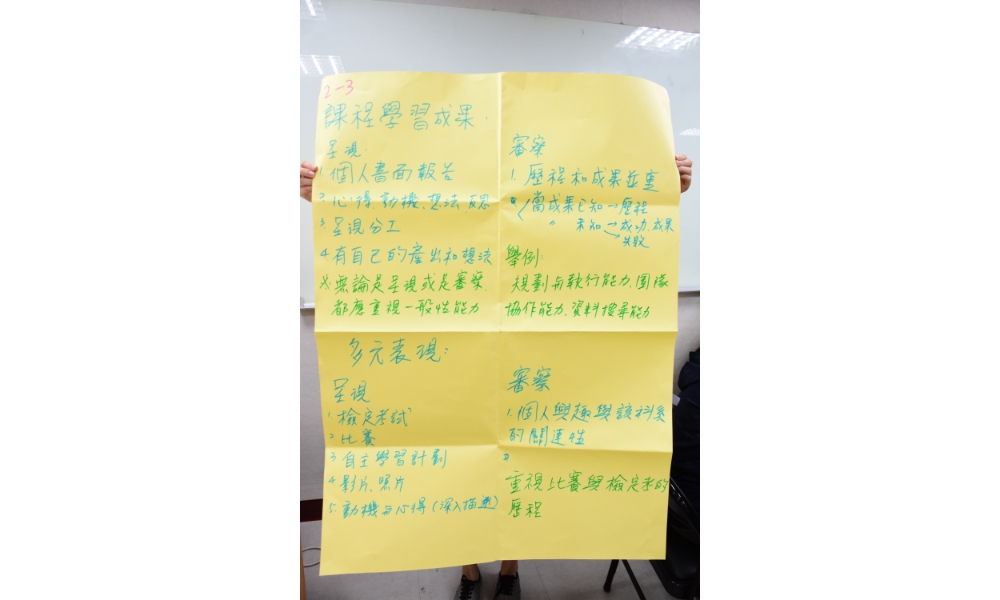 2-3
課程學習成果:
呈現:
1. 個人書面報告
2. 心得、動機、想法、反思
3. 呈現分工
4. 有自己的產出和想法
※無論是呈現或是審察,
都應重視一般性能力
審察
1. 歷程和成果並重
當成果已知→歷程
〃 未知→成功、成果
失敗
舉例:
規劃與執行能力、團隊
協作能力、資料搜尋能力
多元表現:
呈現
1. 檢定考試
2. 比賽
3. 自主學習計劃
4. 影片、照片
5. 動機與心得(深入描述)
審察
1. 個人興趣與該科系
的關連性
重視比賽與檢定考的
歷程